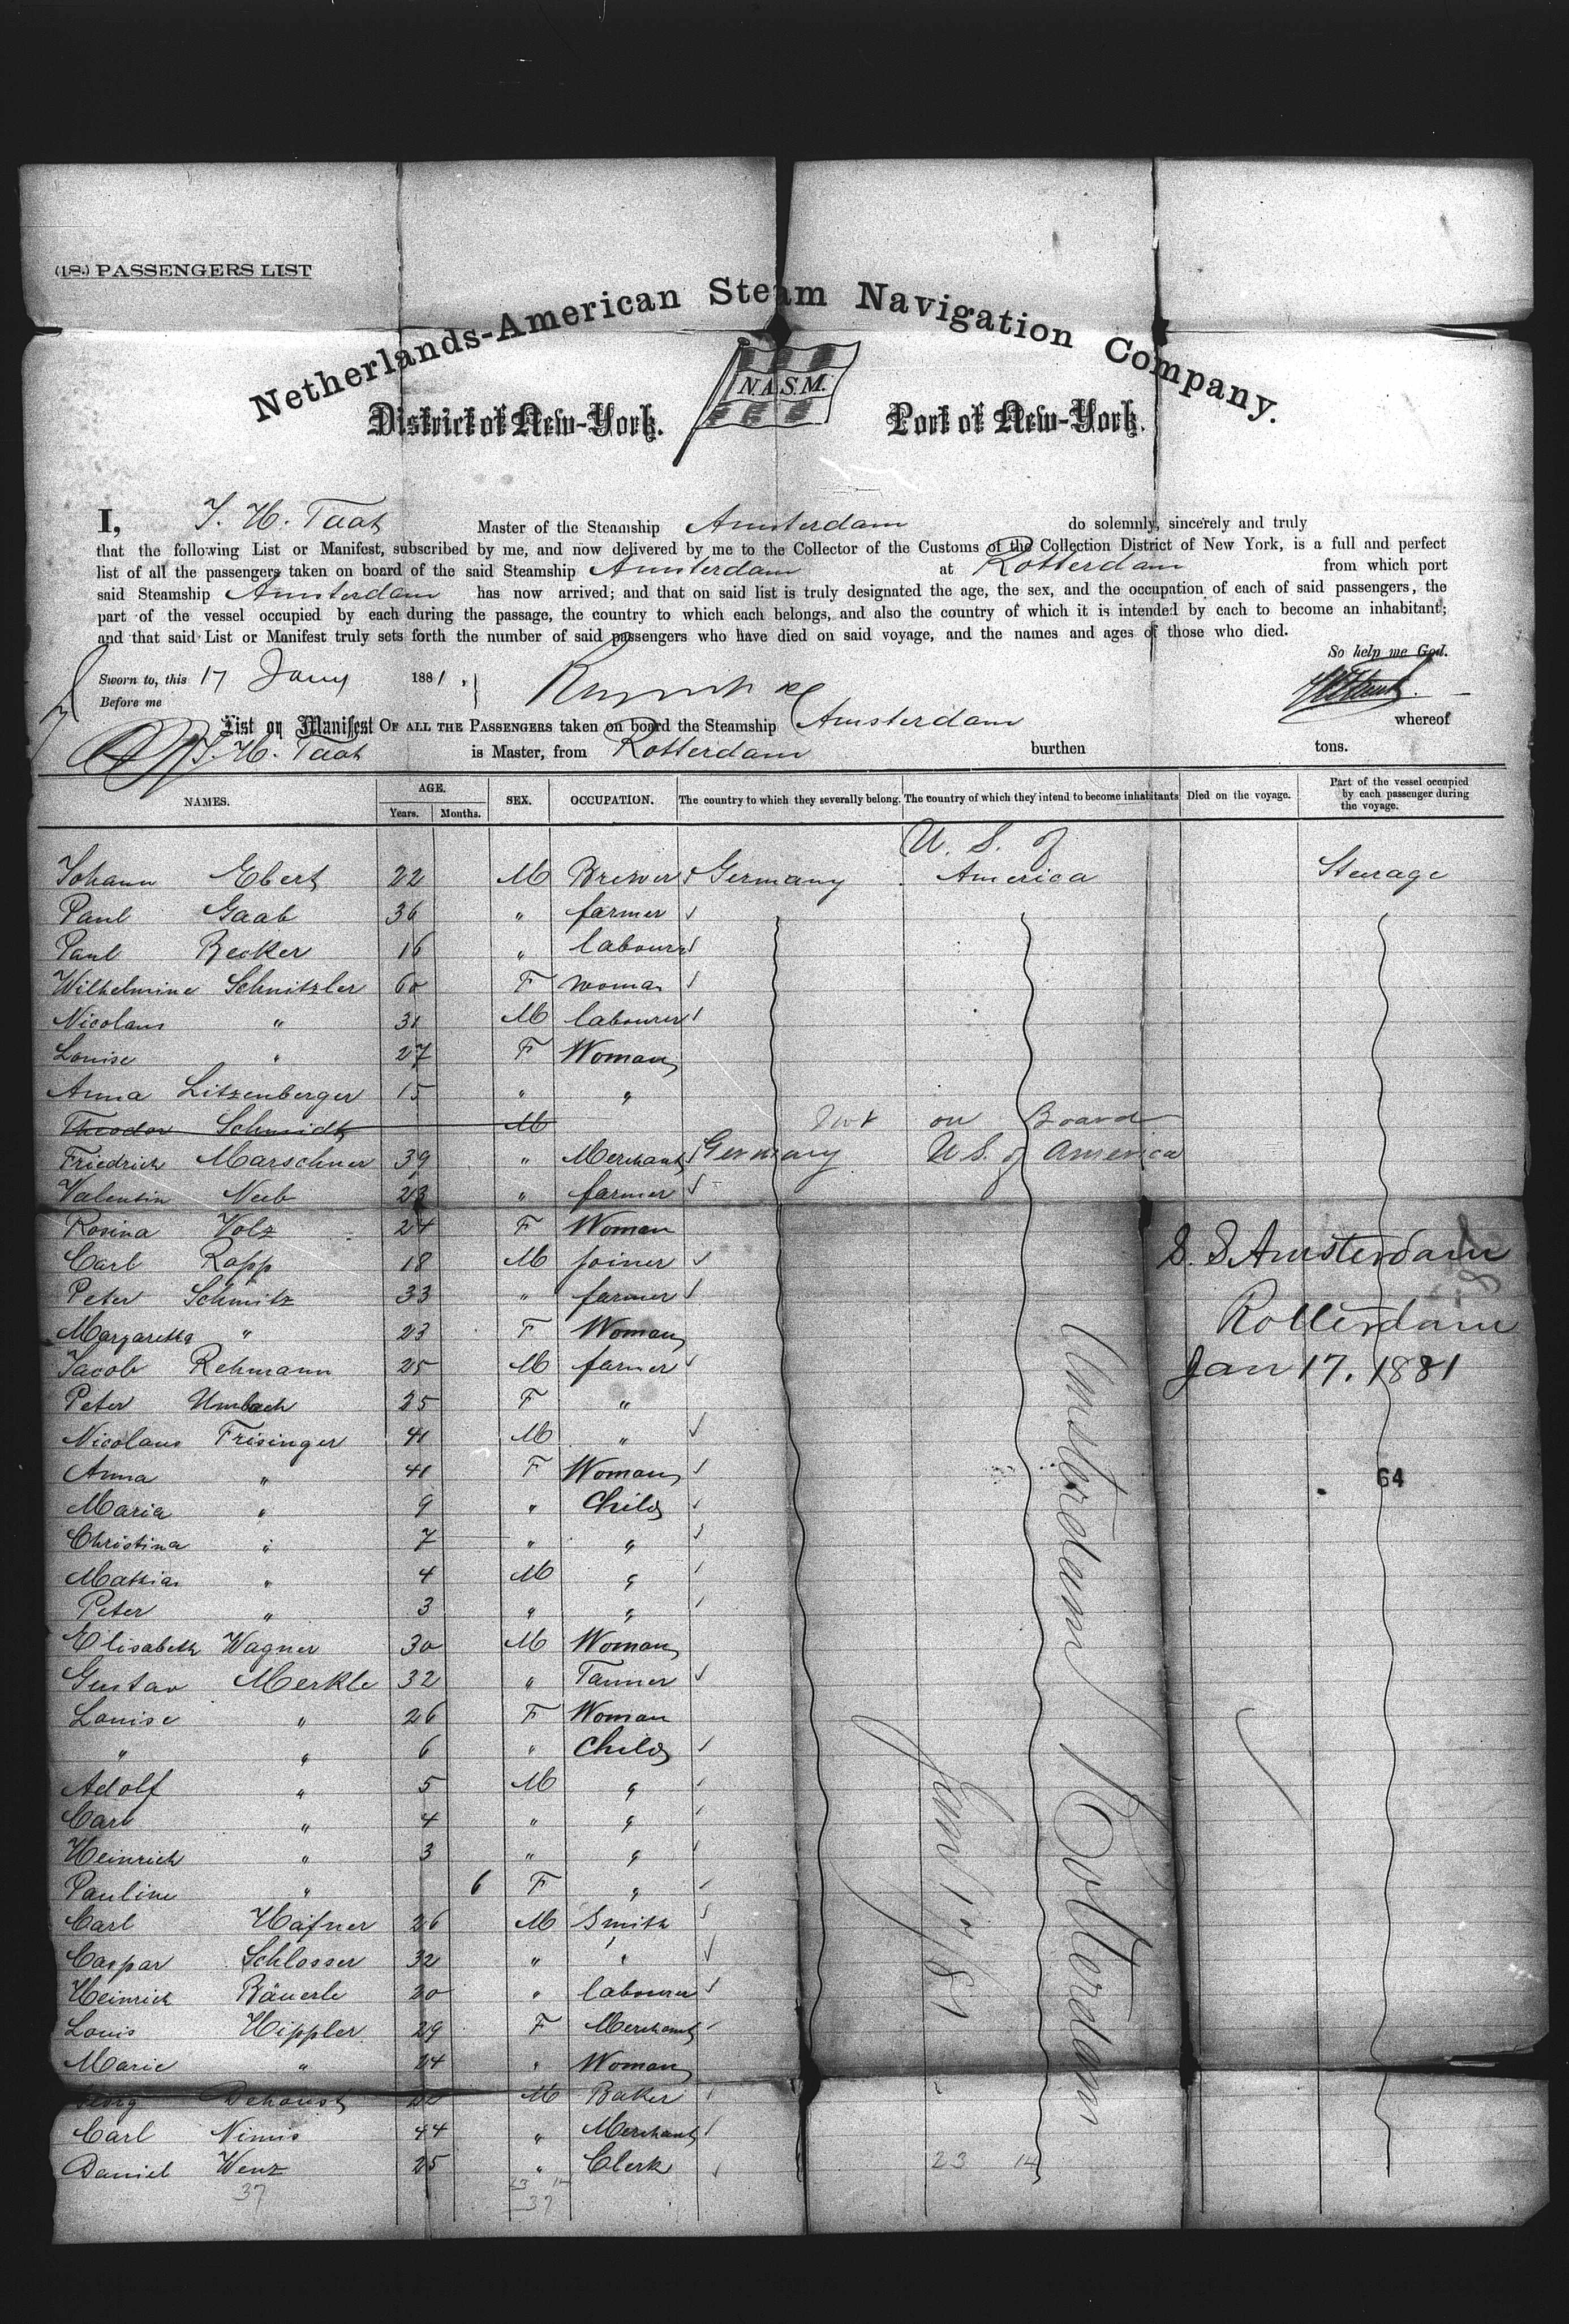 (18.) PASSENGERS LIST
Netherlands-American Steam Navigation Company.
N.A.S.M.
District of New-York. Port of New-York.
I, J. H. Taat Master of the Steamship Amsterdam do solemnly, sincerely and truly
that the following List or Manifest, subscribed by me, and now delivered by me to the Collector of the Customs of the Collection District of New York, is a full and perfect
list of all the passengers taken on board of the said Steamship Amsterdam at Rotterdam from which port
said Steamship Amsterdam has now arrived; and that on said list is truly designated the age, the sex, and the occupation of each of said passengers, the
part of the vessel occupied by each during the passage, the country to which each belongs, and also the country of which it is intended by each to become an inhabitant;
and that said List or Manifest truly sets forth the number of said passengers who have died on said voyage, and the names and ages of those who died.
So help me God.
Sworn to, this 17 Jany 1881,
Before me
List or Manifest OF ALL THE PASSENGERS taken on board the Steamship Amsterdam whereof
J. H. Taat is Master, from Rotterdam burthen tons.
NAMES. AGE. Years. Months. SEX. OCCUPATION. The country to which they severally belong. The country of which they intend to become inhabitants Died on the voyage. Part of the vessel occupied by each passenger during the voyage.
U. S. of
Johann Ebert 22 M Brewer Germany America Steerage
Paul Gaab 36 " farmer
Paul Becker 16 " labourer
Wilhelmine Schnitzler 60 F woman
Nicolaus " 31 M labourer
Louise " 27 F Woman
Anna Litzenberger 15 " "
Theodor Schmidt M Not on Board
Friedrich Marschner 39 " Merchant Germany U.S. of America
Valentin Neeb 23 " farmer
Rosina Volz 24 F Woman
Carl Rapp 18 M joiner
Peter Schmitz 33 " farmer
Margaretha " 23 F Woman
Jacob Rehmann 25 M farmer
Peter Umbach 25 F "
Nicolaus Frisinger 41 M "
Anna " 41 F Woman
Maria " 9 " Child
Christina " 7 " "
Mathias " 4 M "
Peter " 3 " "
Elisabeth Wagner 30 M Woman
Gustav Merkle 32 " Tanner
Louise " 26 F Woman
" " 6 " Child
Adolf " 5 M "
Carl " 4 " "
Heinrich " 3 " "
Pauline " 6 F "
Carl Häfner 26 M Smith
Caspar Schlosser 32 " "
Heinrich Bäuerle 20 " labourer
Louis Hippler 29 F Merchant
Marie " 24 " Woman
Georg Dehoust M Baker
Carl Nimis 44 " Merchant
Daniel Wenz 25 " Clerk
37
23 14
37
23 14
S. S Amsterdam
Rotterdam
Jan 17. 1881
64
Amsterdam Rotterdam
Jan 17/81